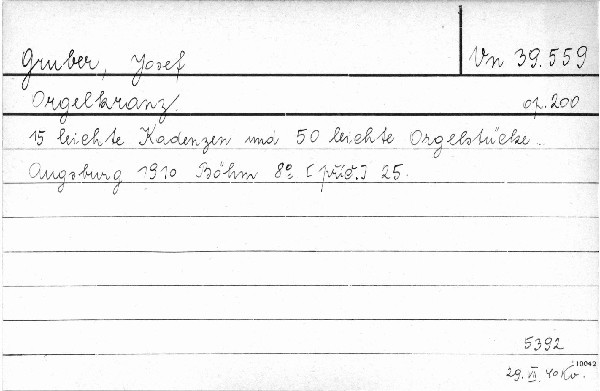 Gruber, Josef Vn 39.559
Orgelkranz op. 200
15 leichte Kadenzen und 50 leichte Orgelstücke.
Augsburg 1910 Böhm 8° [příd.] 25.
5392
10042
29. VI. 40 Kv.